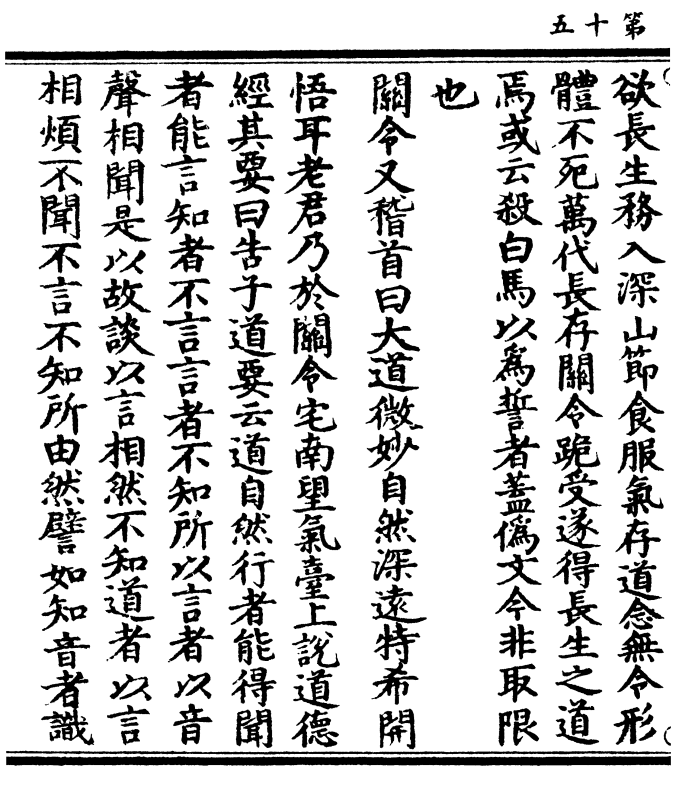 第十五
欲長生務入深山節食服氣存道念無令形
體不死萬代長存關令跪受遂得長生之道
焉或云殺白馬以爲誓者蓋僞文今非取限
也
關令又稽首曰大道微妙自然深遠特希開
悟耳老君乃於關令宅南望氣臺上說道德
經其要曰告子道要云道自然行者能得聞
者能言知者不言言者不知所以言者以音
聲相聞是以故談以言相然不知道者以言
相煩不聞不言不知所由然譬如知音者識